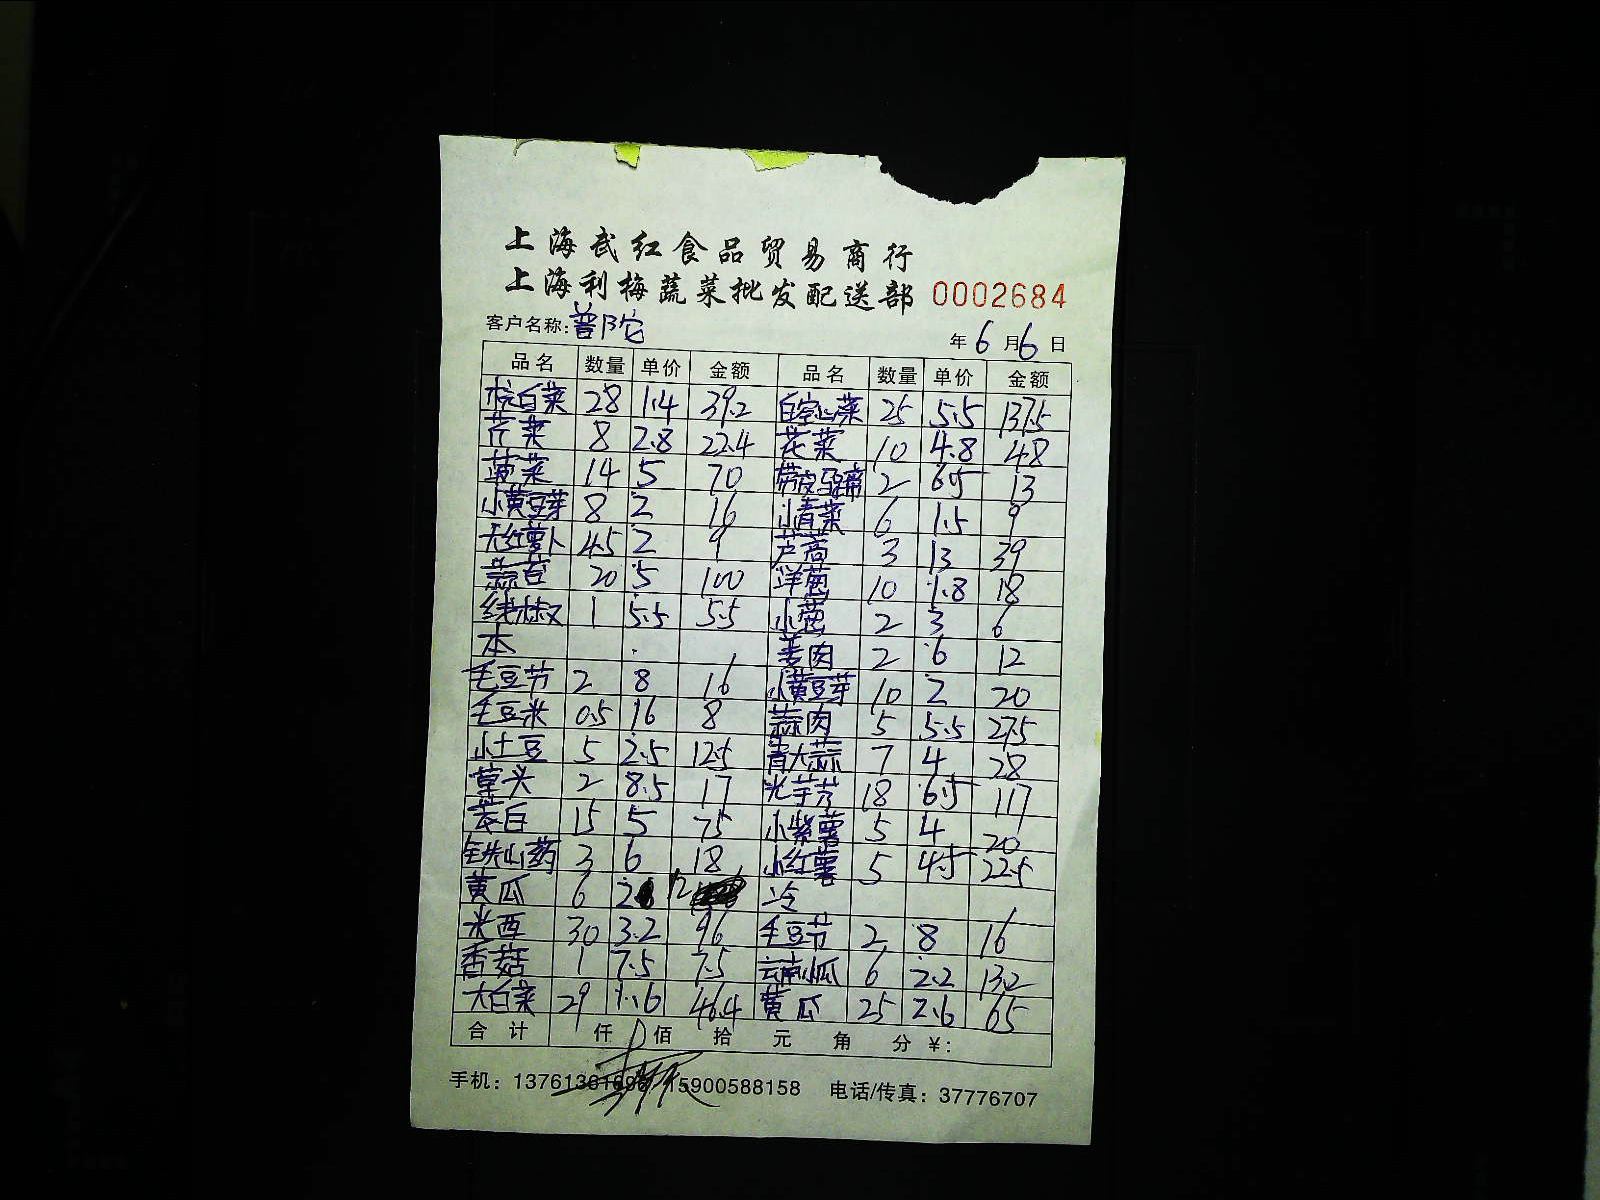 上海武红食品贸易商行
上海利梅蔬菜批发配送部 0002684
客户名称:普陀
年6月6日
品名 数量 单价 金额 品名 数量 单价 金额
杭白菜 28 1.4 39.2 白空心菜 25 5.5 137.5
芹菜 8 2.8 22.4 花菜 10 4.8 48
菠菜 14 5 70 带皮马蹄 2 6.5 13
小黄豆芽 8 2 16 小青菜 6 1.5 9
红萝卜 4.5 2 9 芦蒿 3 13 39
蒜苔 20 5 100 洋葱 10 1.8 18
线椒 1 5.5 5.5 小葱 2 3 6
本 姜肉 2 6 12
毛豆节 2 8 16 小黄豆芽 10 2 20
毛豆米 0.5 16 8 蒜肉 5 5.5 27.5
小土豆 5 2.5 12.5 青大蒜 7 4 28
草头 2 8.5 17 光芋艿 18 6.5 117
茭白 15 5 75 小紫薯 5 4 20
铁山药 3 6 18 小红薯 5 4.5 22.5
黄瓜 6 2 12 冷
米西 30 3.2 96 毛豆节 2 8 16
香菇 1 7.5 7.5 云南小瓜 6 2.2 13.2
大白菜 29 1.6 46.4 黄瓜 25 2.6 65
合计 仟 佰 拾 元 角 分 ¥:
手机: 15900588158 电话/传真: 37776707